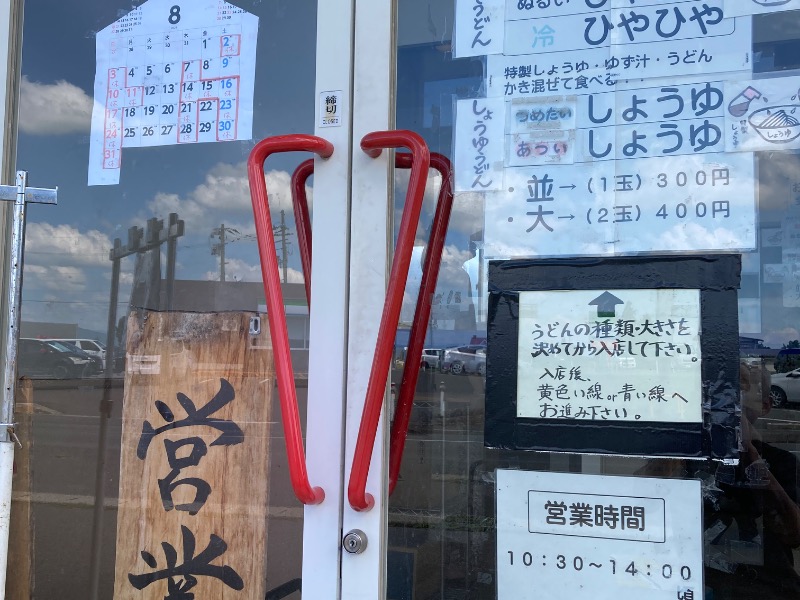 8
月 火 水 木 金 土
1 2
3 4 5 6 7 8 9
10 11 12 13 14 15 16
17 18 19 20 21 22 23
24 25 26 27 28 29 30
31
締切
営
業
うどん
ぬるい
冷 ひやひや
特製しょうゆ・ゆず汁・うどん
かき混ぜて食べる・・
しょうゆうどん
つめたい しょうゆ
あつい しょうゆ
・並→(1玉)300円
・大→(2玉)400円
うどんの種類・大きさを
決めてから入店して下さい。
入店後、
黄色い線or青い線へ
お進み下さい。
営業時間
10:30~14:00
頃